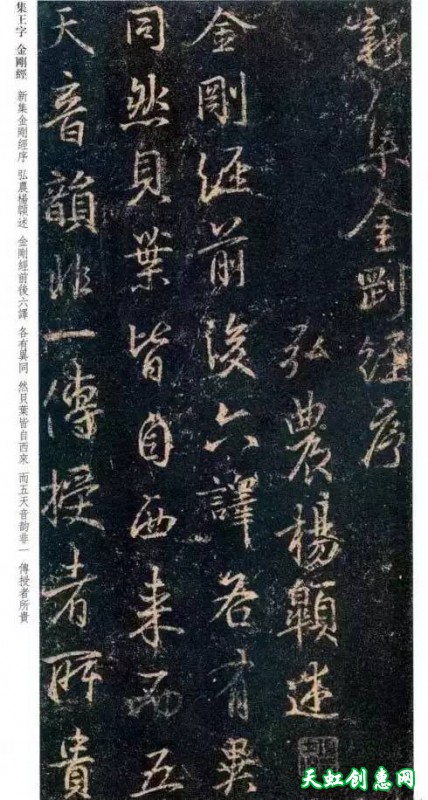 新集金剛經序
弘農楊述
金剛經前後六譯各有異
同然貝葉皆自西来而五
天音韻非一傳授者所貴
集王字 金剛經 新集金剛經序 弘農楊述 金剛經前後六譯 各有異同 然貝葉皆自西來 而五天音韵非一 傳授者所貴
天虹创意网